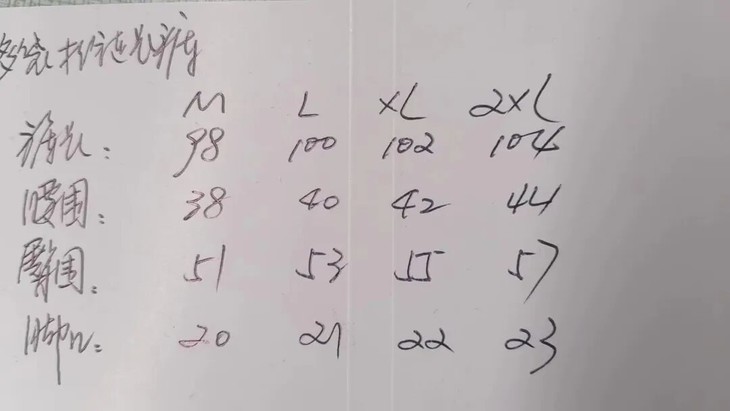 拉链长裤
M L XL 2XL
裤长: 98 100 102 104
腰围: 38 40 42 44
臀围: 51 53 55 57
脚口: 20 21 22 23